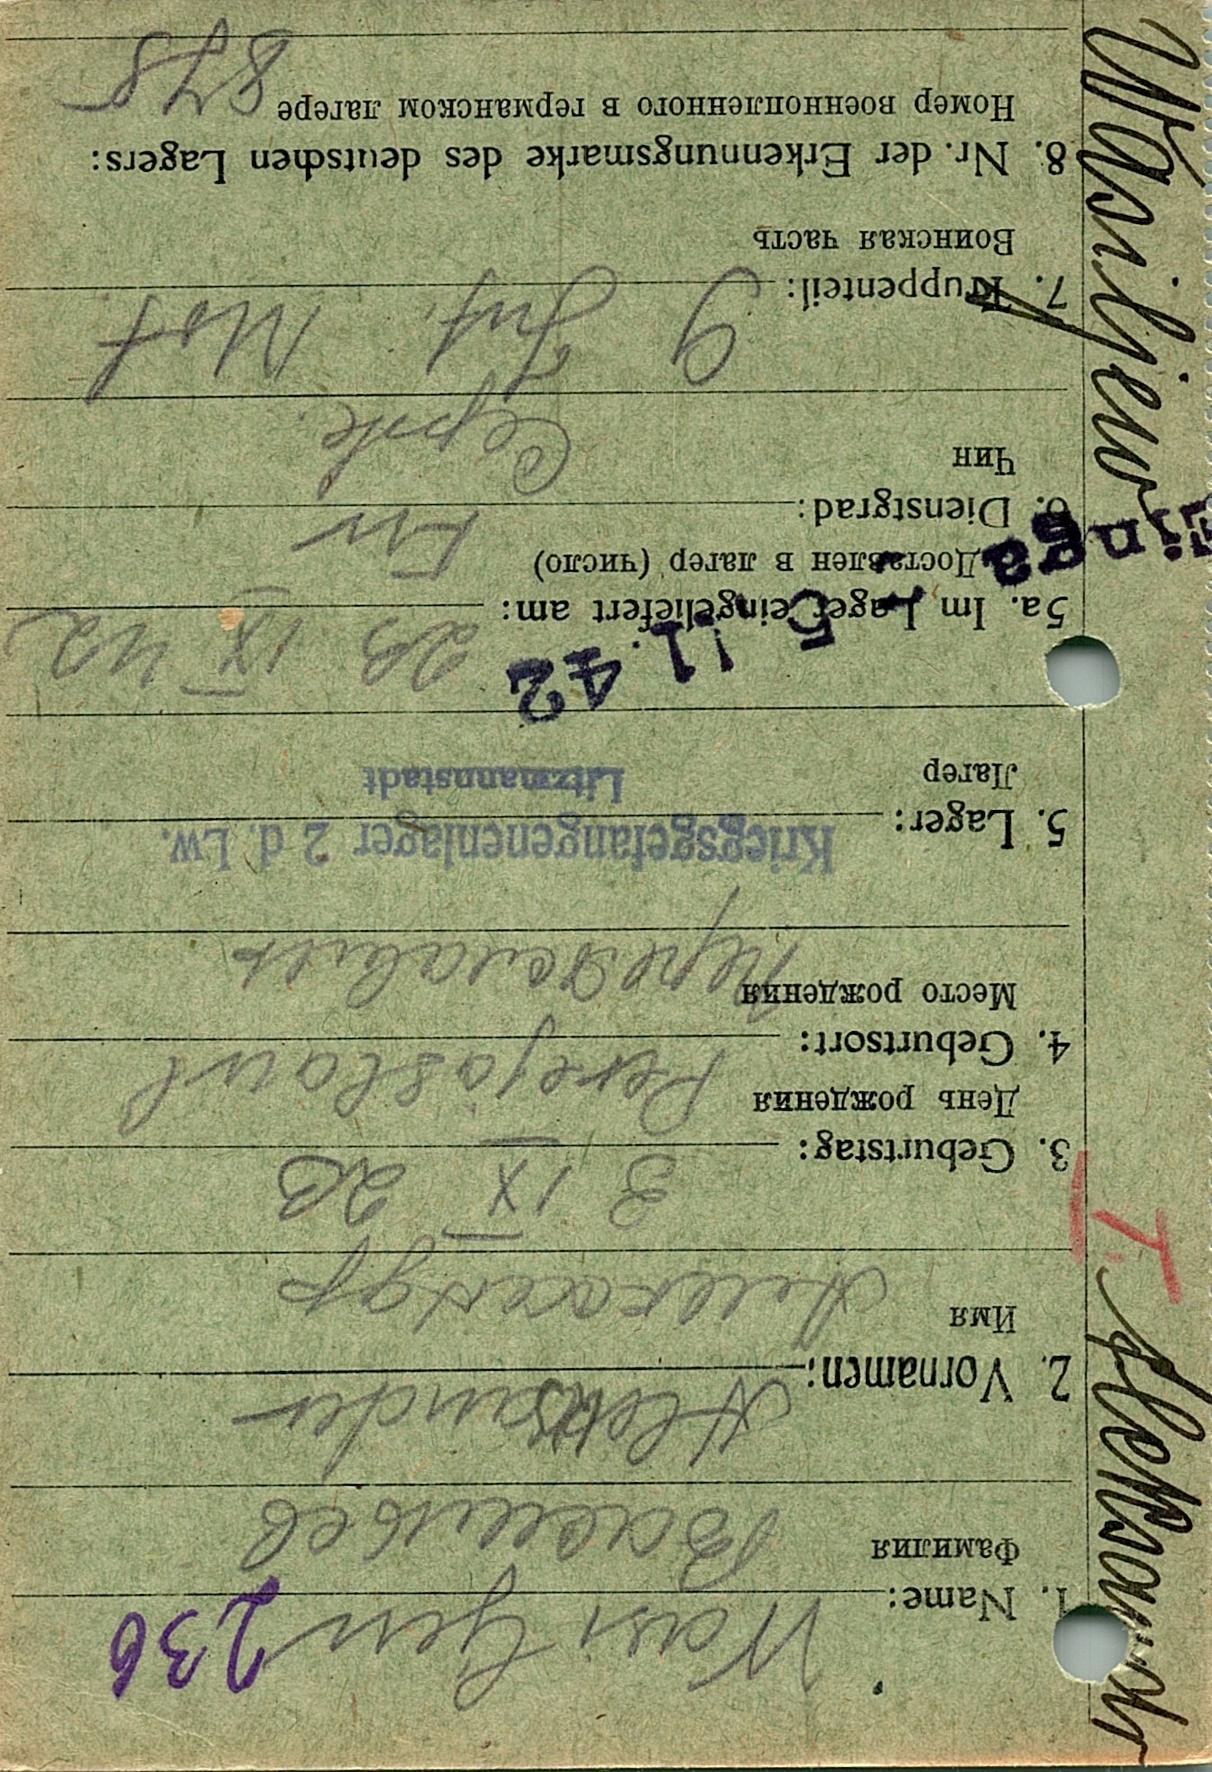 236
1. Name: Wasiljew
Фамилия Васильев
2. Vornamen: Aleksander
Имя Александр
3. Geburtstag: 3 IX 23
День рождения
4. Geburtsort: Perejaslawl
Место рождения Переяславль
5. Lager: Kriegsgefangenenlager 2 d. Lw.
Лагер Litzmannstadt
5a. Im Lager eingeliefert am: 23 IX 42
Доставлен в лагер (число)
5 11. 42
6. Dienstgrad:
Чин Серж.
7. Truppenteil: 9 Inf. Mot
Воинская часть
8. Nr. der Erkennungsmarke des deutschen Lagers:
Номер военнопленного в германском лагере 878
Wasiljew
T.